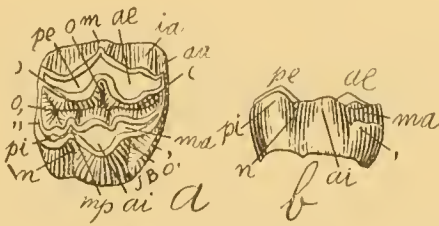 pe o m ae ia
aa
o,
"
pi
n
mp ai
ma
a
pe ae
pi ma
n ai
b